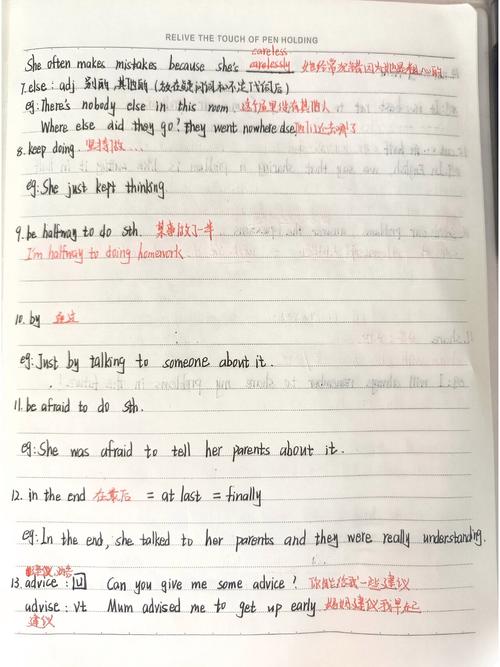 RELIVE THE TOUCH OF PEN HOLDING
careless
She often makes mistakes because she's carelessly 她经常犯错因为她是粗心的
7. else: adj 别的, 其他的 (放在疑问词和不定代词后)
eg: There's nobody else in this room 这个房里没有其他人
Where else did they go? They went nowhere else 他们还去哪了
8. keep doing. 坚持做...
eg: She just kept thinking.
9. be halfway to do sth. 某事做了一半
I'm halfway to doing homework.
10. by 通过
eg: Just by talking to someone about it.
11. be afraid to do sth.
eg: She was afraid to tell her parents about it.
12. in the end 在最后 = at last = finally
eg: In the end, she talked to her parents and they were really understanding.
建议, 劝告
13. advice: [U] Can you give me some advice? 你能给我一些建议
advise: vt Mum advised me to get up early 妈妈建议我早起
建议